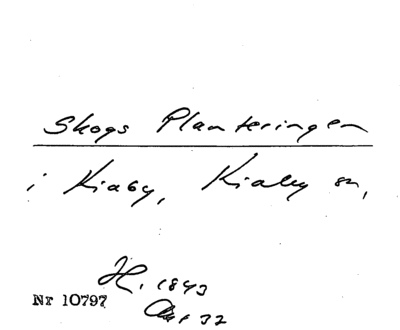 Skogs Planteringen
i Kiaby, Kiaby sn,
H. 1843
Nr 10797
32